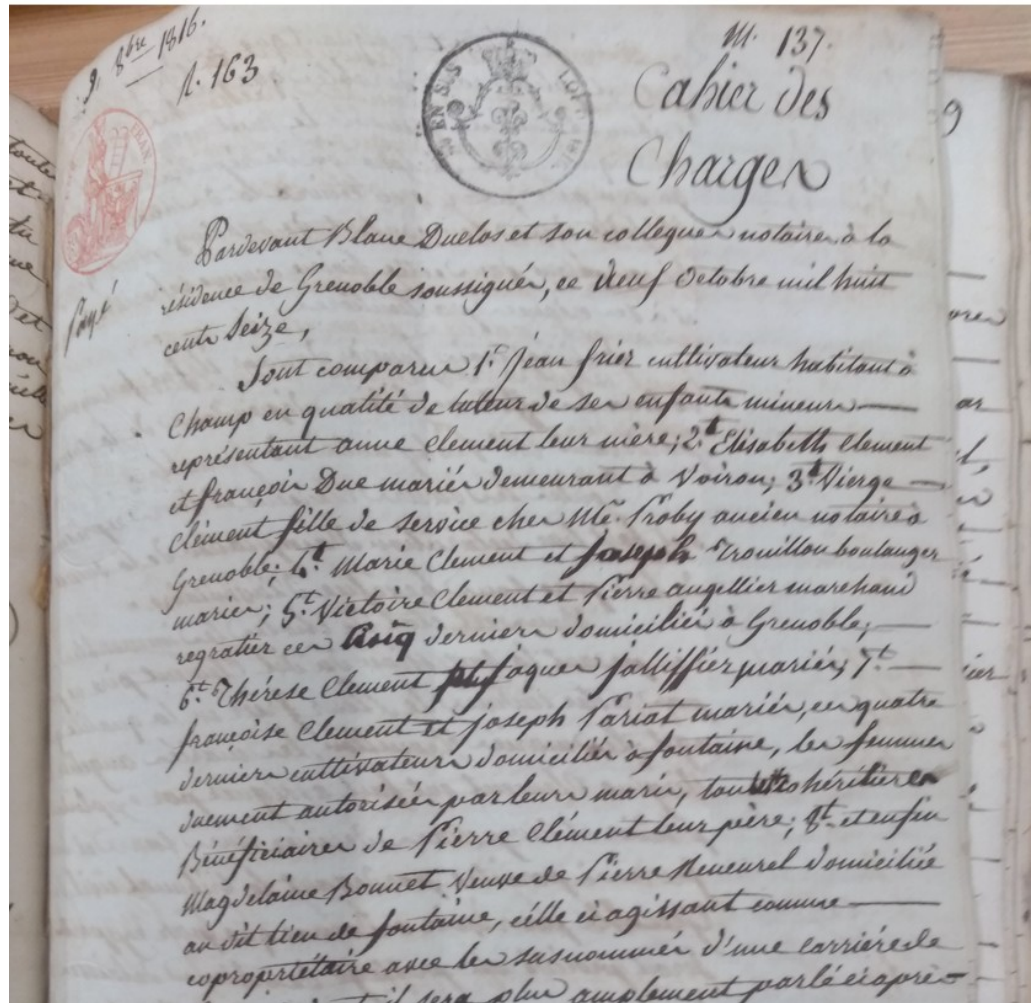 9. 8bre 1816.
n. 163
M. 137.
Cahier des
Charges
EN SUS
FRAN
Payé
Pardevant Blanc Duclos et son collegue notaires à la
résidence de Grenoble soussignés, ce neuf Octobre mil huit
cents seize,
Sont comparus 1.t Jean frier cultivateur habitant à
Champ en qualité de tuteur de ses enfants mineurs
représentant anne Clement leur mère; 2.t Elisabeth Clement
et françois Duc mariés demeurant à Voiron; 3.t Vierge
Clément fille de service chez Me. Proby ancien notaire à
Grenoble; 4.t Marie Clement et Joseph Trouillon boulanger
mariés; 5.t Victoire Clement et Pierre angellier marchand
regratier ces cinq derniers domiciliés à Grenoble;
6.t Thérese Clement jaques jalliffier mariés; 7.t
françoise Clement et joseph Pariat mariés, ces quatre
derniers cultivateurs domiciliés à fontaine, les femmes
duement autorisées par leurs maris, tous cohéritiers
Bénéficiaires de Pierre Clément leur père; 8.t et enfin
Magdelaine Bonnet Veuve de Pierre domiciliée
au dit lieu de fontaine, célle ci agissant comme
copropriétaire avec les susnommés d'une carriére de
il sera plus amplement parlé ci après